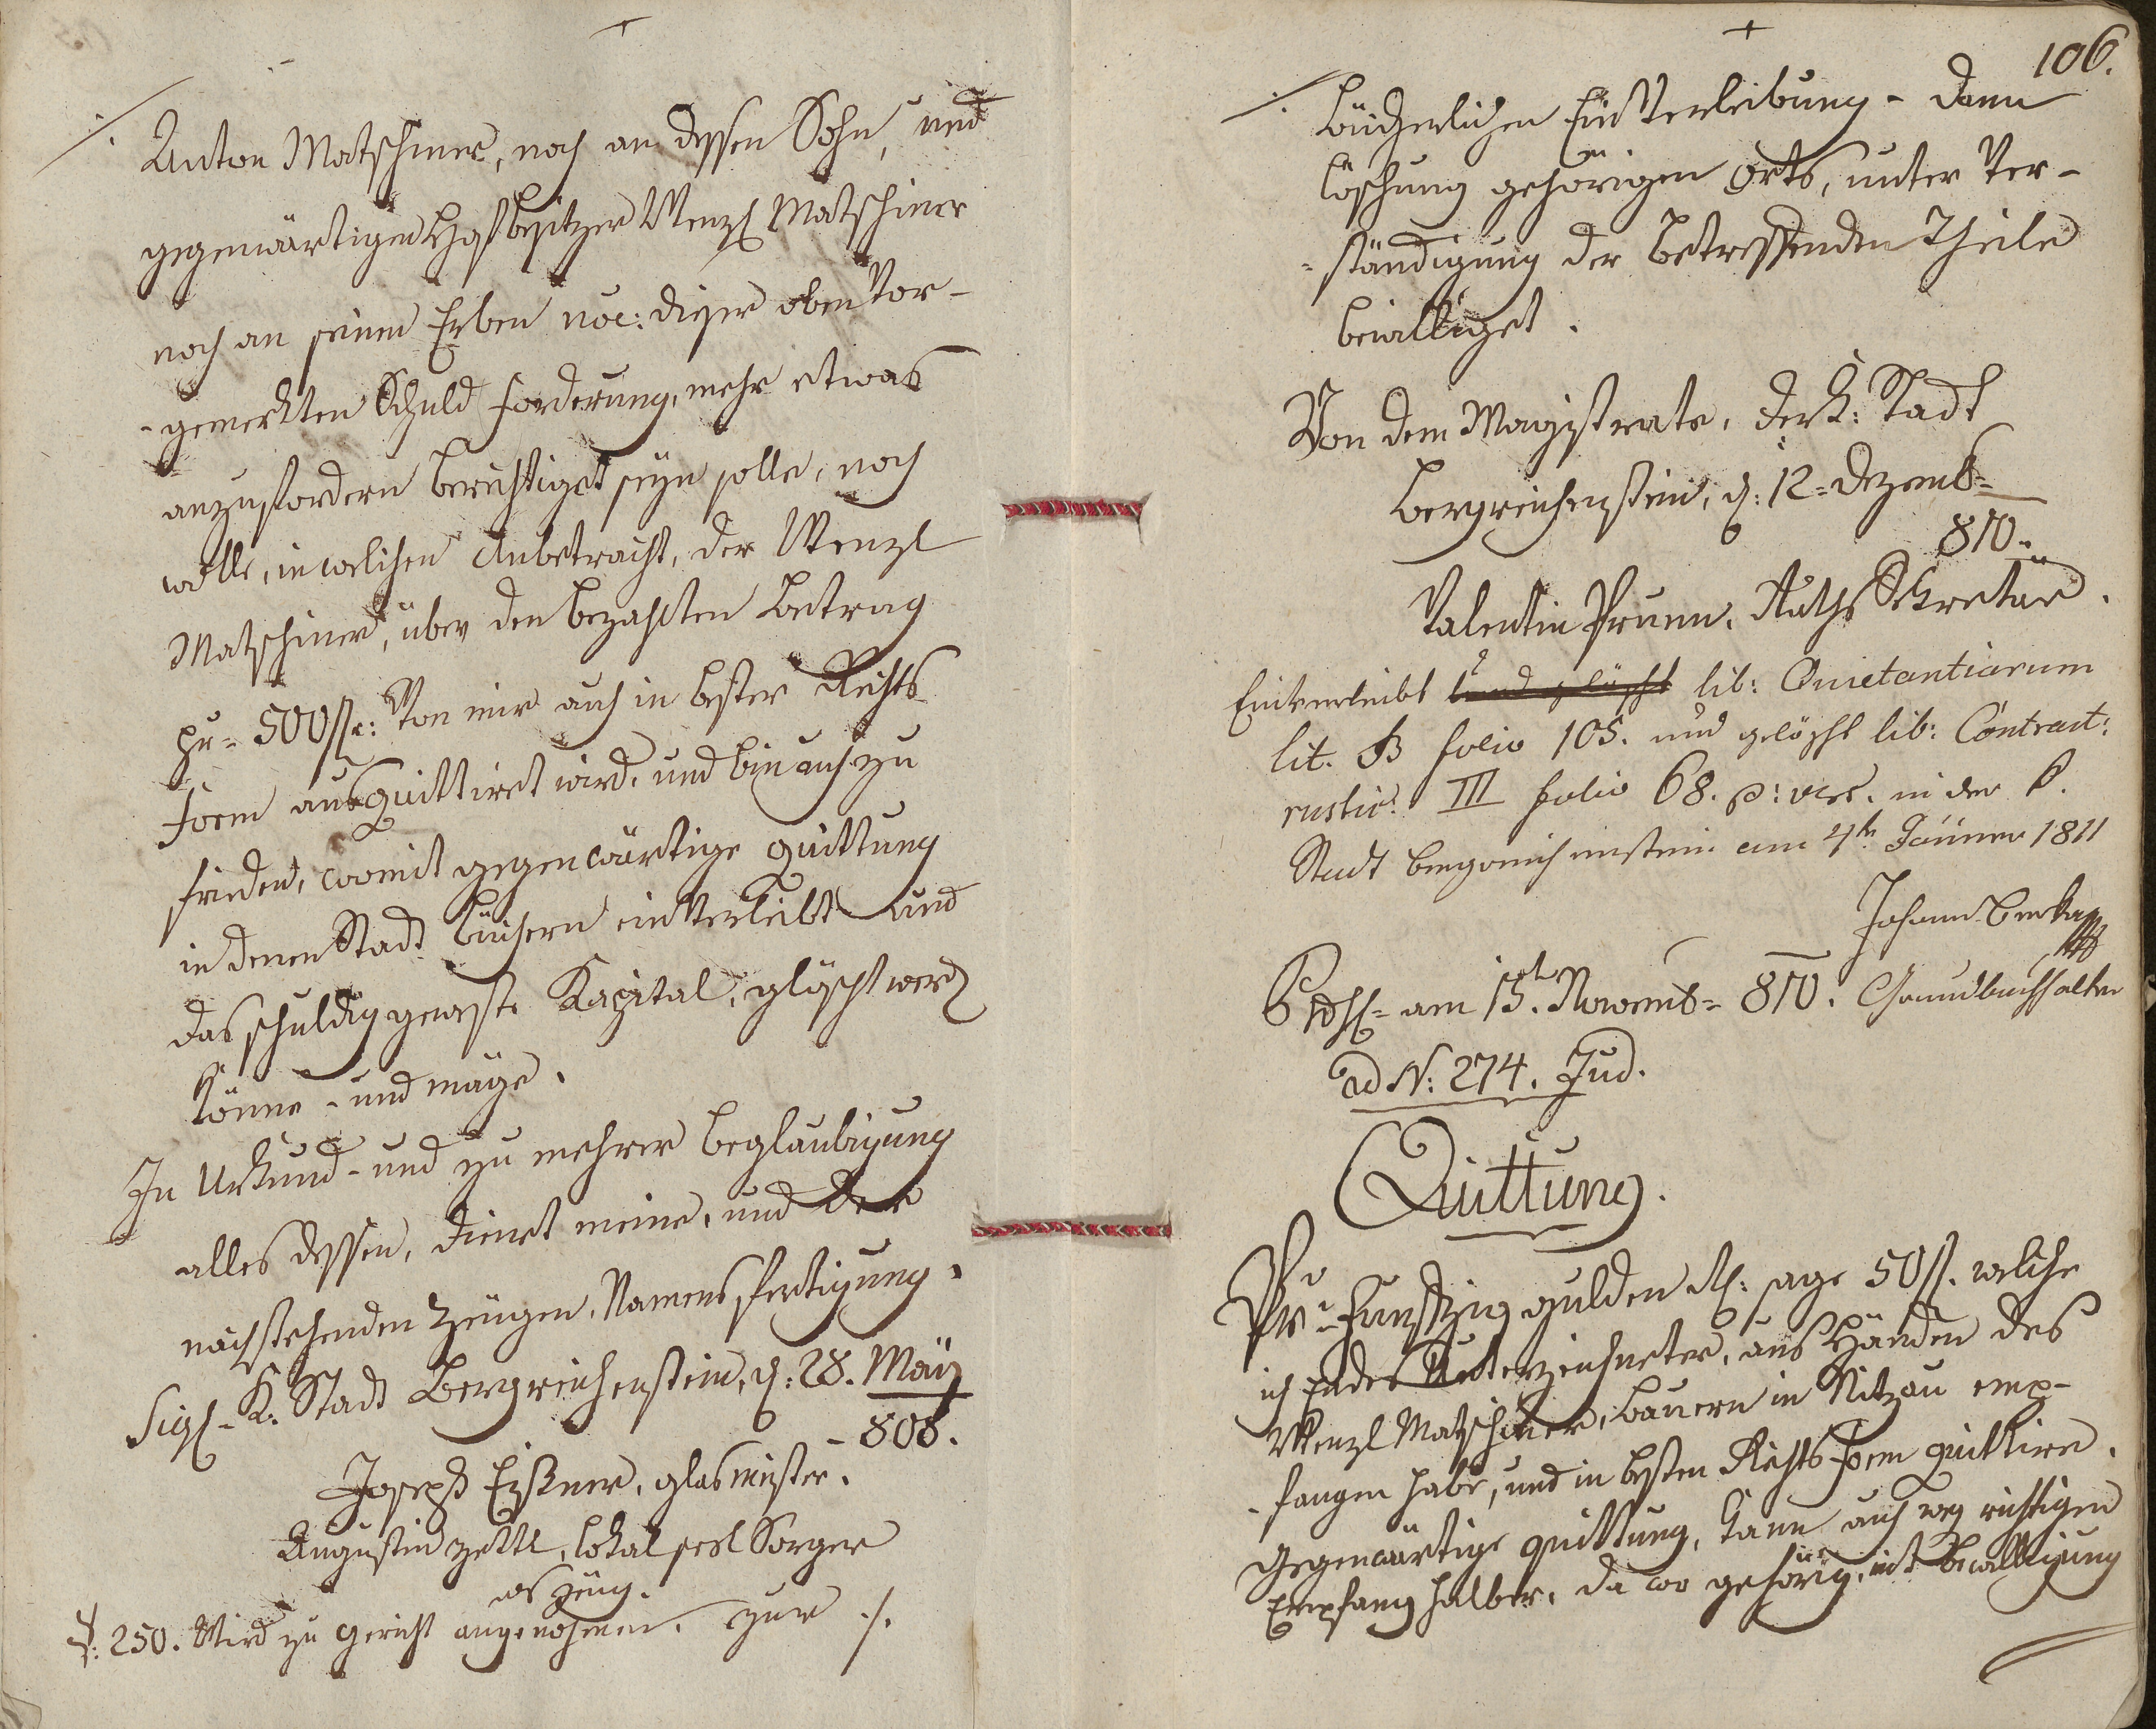 ./.
Anton Matschiner, noch an dessen Sohn, und
gegenwärtigen Hofbesitzer Wenzl Matschiner
noch an seinen Erben noe: dieser oben vor-
-gemerkten Schuld forderung, mehr etwas
anzufordern berechtiget seyn solle, noch
wolle, in welichen Anbetracht, der Wenzl
Matschiner, über den bezahlten Betrag
pr= 500 fl: von mir auch in bester Rechts
form ausquittiret wird, und bin auch zu
frieden, womit gegenwärtige quittung
in denen Stadt büchern einverleibt und
das schuldig geweste Kapital, glöscht werd
könne - und möge.
In Urkund - und zu mehrer beglaubigung
alles dessen, dienet meine, und der
nachstehenden Zeugen, Namensfertigung.
Sigl - K. Stadt Bergreichenstein, d: 28. May
- 808.
Joseph Eisner, glasmeister.
Augustin Zettl, lokal seelSorger
als Zeug.
250. Wird zu gericht angenohmen. zur ./.
106.
./.
bücherlichen Einverleibung - dann
löschung gehörigen Orts, unter Ver-
-ständigung der betreffenden Theile
bewilliget.
Von dem Magistrate, der k: Stadt
Bergreichenstein, d: 12= Dezemb=
810.
Valentin Prunn, Raths Sekretär.
Einverleibt und glöscht lib: Quietantiarum
lit. B folio 105. und gelöscht lib: Contract:
rustic: III folio 68. p: ver. in der k.
Stadt bergreichenstein am 4tn Jänner 1811
Johann
Grundbuchhalter
am 15t. Novemb= 810.
ad N: 274. Jud.
Quittung.
Pr= Funfzig gulden sage 50 fl. welche
ich Endes Unterzeichneter, aus Händen des
Wenzl Matschiner, bauern in Nitzau emp-
-fangen habe, und in besten Rechts form quittire.
Gegenwärtige quittung, kann auch weg richtigen
Empfang halber, da wo gehörig, mit bewilligung